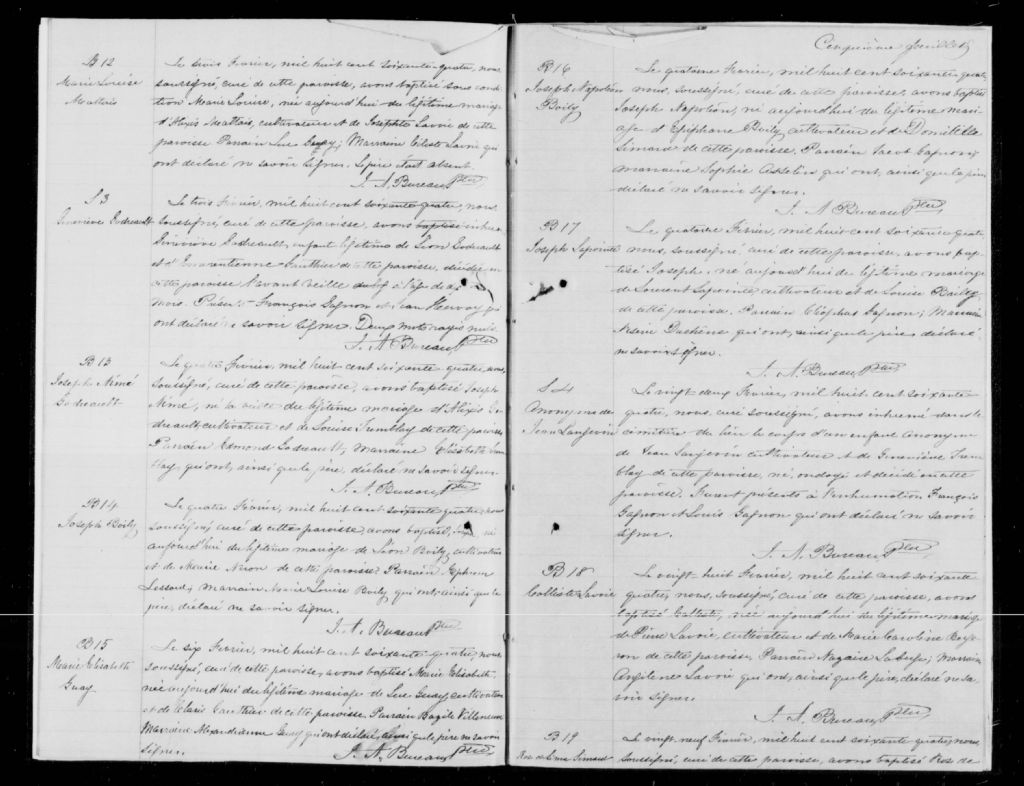 B 12
Marie Louise
Maltais
Le trois Février, mil huit cent soixante-quatre, nous
soussigné, curé de cette paroisse, avons baptisé sous condi
tion Marie Louise, née aujourd'hui du légitime mariage
d'Alexis Maltais, cultivateur et de Josephte Savoie de cette
paroisse Parrain Luc Guay; Marraine Célest Savoie qui
ont déclaré ne savoir signer. Le père était absent.
J. A. Bureau Ptre
S 3
Geneviève Godreault
Le trois Février, mil huit cent soixante quatre, nous
soussigné, curé de cette paroisse, avons baptisé inhumé
Geneviève Godreault, enfant légitime de Léon Godreault
et d' Gauthier de cette paroisse, décédée en
cette paroisse l'avant veille à l'age de
mois. Présents François Gagnon et Jean Hervey qui
ont déclaré ne savoir signer. Deux mots rayés nuls.
J. A. Bureau Ptre
B 13
Joseph Aimé
Godreault
Le quatre Février, mil huit cent soixante quatre, nous,
soussigné, curé de cette paroisse, avons baptisé Joseph
Aimé, né la veille du légitime mariage d'Alexis Go
dreault cultivateur et de Louise Tremblay de cette paroisse
Parrain Edmond Godreault, Marraine Elisabeth Trem
blay, qui ont, ainsi que le père, déclaré ne savoir signer.
J. A. Bureau Ptre
B 14
Joseph Boily
Le quatre Février, mil huit cent soixante quatre, nous
soussigné, curé de cette paroisse, avons baptisé, Joseph, né
aujourd'hui du légitime mariage de Léon Boily, cultivateur
et de Marie Néron de cette paroisse Parrain Ephrem
Lessard, marraine Marie Louise Boily qui ont, ainsi que le
père, déclaré ne savoir signer.
J. A. Bureau Ptre
B 15
Marie Elisabeth
Guay
Le six Février, mil huit cent soixante-quatre, nous
soussigné, curé de cette paroisse, avons baptisé Marie Elisabeth,
née aujourd'hui du légitime mariage de Luc Guay, cultivateur
et de Gauthier de cette paroisse, Parrain Bazile Villeneuve
Marraine Alexandrienne Guay qui ont déclaré, ainsi que le père ne savoir
signer.
J. A. Bureau Ptre
Cinquième feuillet
B 16
Joseph Napoléon
Boily
Le quatorze Février, mil huit cent soixante quatre
nous, soussigné, curé de cette paroisse, avons baptisé
Joseph Napoléon, né aujourd'hui du légitime mari
age d'Epiphane Boily, cultivateur et de Domitille
Simard de cette paroisse. Parrain Jacob Gagnon;
marraine Sophie Asselin qui ont, ainsi que le père
déclaré ne savoir signer.
J. A Bureau Ptre
B 17
Joseph Lapointe
Le quatorze Février, mil huit cent soixante quatre
nous, soussigné, curé de cette paroisse, avons bap
tisé Joseph, né aujourd'hui du légitime mariage
de Laurent Lapointe, cultivateur et de Louise Boily
de cette paroisse. Parrain Cléophas Gagnon; Marraine
Marie Duchène qui ont, ainsi que le père, déclaré
ne savoir signer.
J. A. Bureau Ptre
S 4
Anonyme de
Jean Langevin
Le vingt-deux Février, mil huit cent soixante
quatre, nous, curé soussigné, avons inhumé dans le
cimetière du lieu le corps d'un enfant Anonyme
de Jean Langevin cultivateur et de Geneviève Trem
blay de cette paroisse, né, ondoyé et décédé en cette
paroisse. Furent présents à l'inhumation François
Gagnon et Louis Gagnon qui ont déclaré ne savoir
signer.
J. A. Bureau Ptre
B 18
Calliste Savoie
Le vingt-huit Février, mil huit cent soixante
quatre, nous, soussigné, curé de cette paroisse, avons
baptisé Calliste, née aujourd'hui du légitime mariage
de Pierre Savoie, cultivateur et de Marie Caroline
de cette paroisse, Parrain Nazaire; Marraine
Angélene Savoie qui ont, ainsi que le père, déclaré ne sa
voir signer.
J. A. Bureau Ptre
B 19
Simard
Le vingt-neuf Février, mil huit cent soixante quatre, nous
soussigné, curé de cette paroisse, avons baptisé Ros de